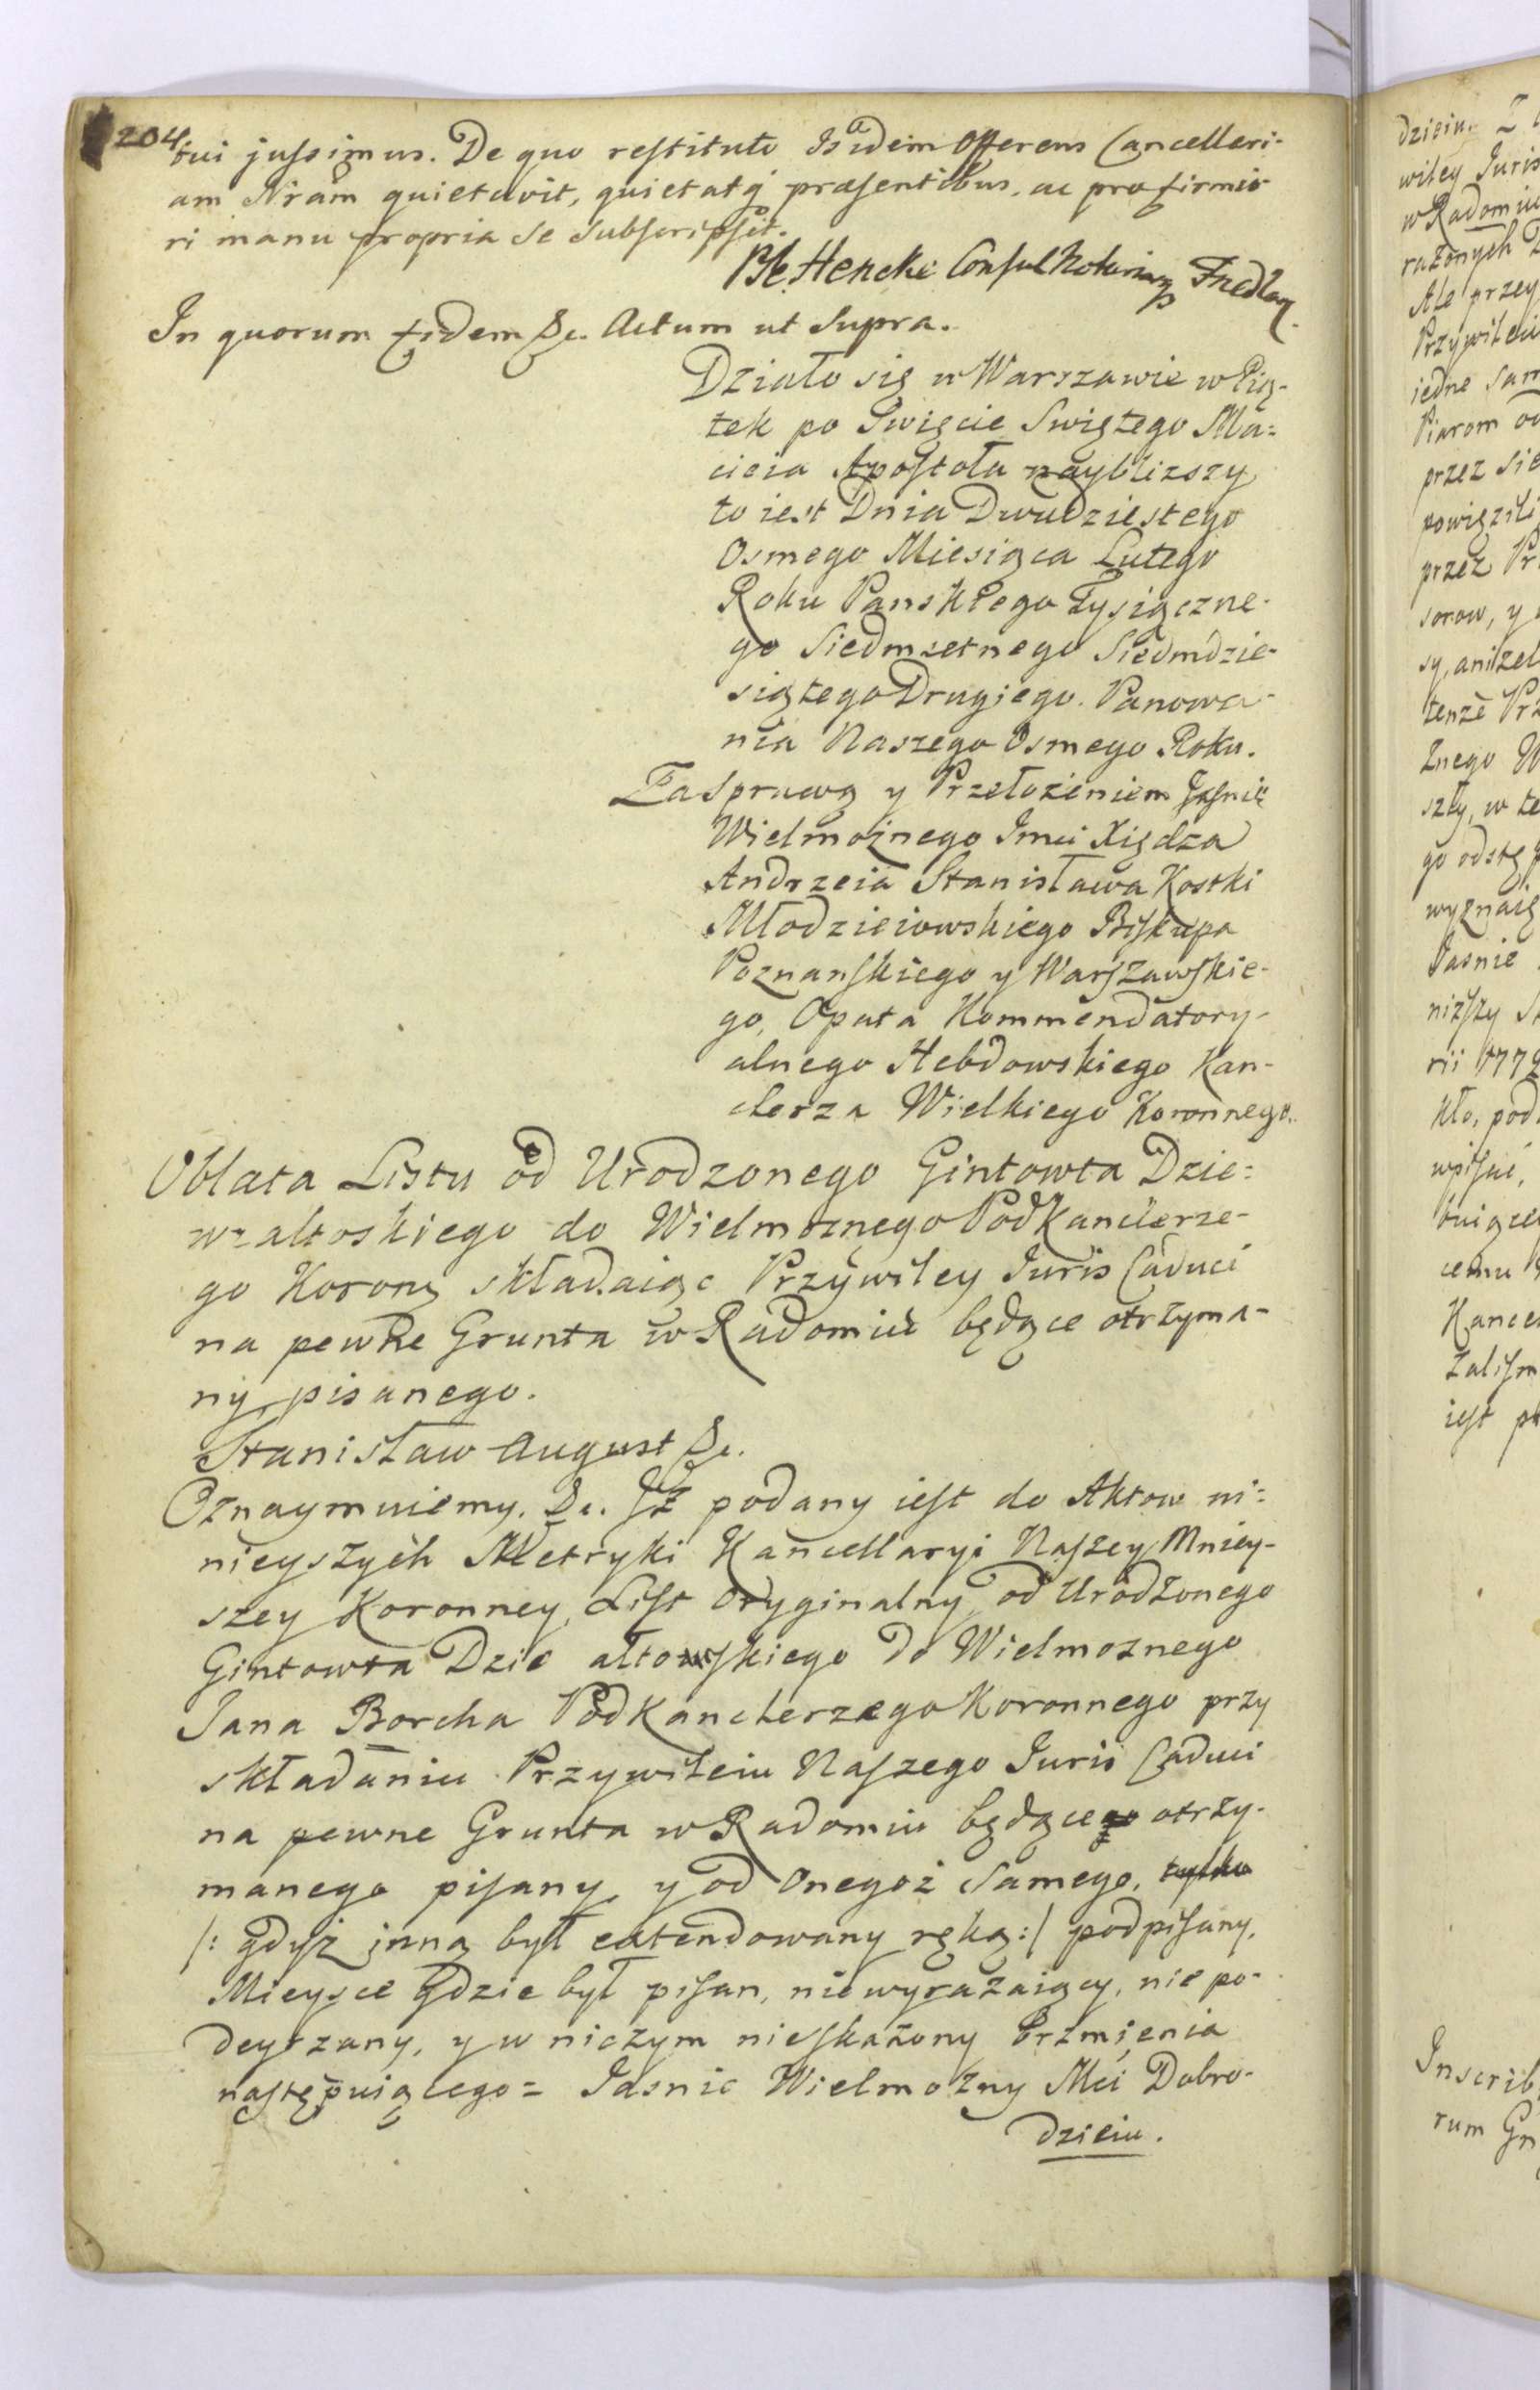 204
tui jussimus. De quo restituto Isdem Offerens Cancelleri-
am Nram quietavit, quietatq praesentibus, ac pro firmio
ri manu propria se subscripsit.
Hencke Consul Notariusq
In quorum fidem &c. Actum ut Supra.
Działo się w Warszawie w Pią-
tek po Święcie Swiętego Ma=
cieia Apostoła nayblizszy
to iest Dnia Dwudziestego
Osmego Miesiąca Lutego
Roku Panskiego Tysiączne-
go Siedmsetnego Siedmdzie-
siątego Drugiego. Panowa-
nia Naszego Osmego Roku.
Za Sprawą y Przełożeniem Jasnie
Wielmożnego Imci Xiędza
Andrzeia Stanisława Kostki
Młodzieiowskiego Biskupa
Poznanskiego y Warszawskie-
go, Opata Kommendatory-
alnego Hebdowskiego Kan-
clerza Wielkiego Koronnego.
Oblata Listu od Urodzonego Gintowta Dzie=
wałtoskiego do Wielmoznego Podkanclerze-
go Korong składaiąc Przywiley Iuris Caduci
na pewne Grunta w Radomiu będące otrzyma-
ny pisanego.
Stanisław August &c.
Oznaymuiemy. &c. Iż podany iest do Aktow ni=
nieyszych Metryki Kancellaryi Naszey Mniey-
szey Koronney, List Oryginalny od Urodzonego
Gintowta Dzie ałtowskiego do Wielmoznego
Jana Borcha Podkanclerzego Koronnego przy
składaniu Przywileiu Naszego Iuris Caduci
na pewne Grunta w Radomiu będące otrzy-
manego pisany, y od Onegoż samego, tylko
/: gdyż inną był extendowany ręką:/ podpisany,
Mieysce gdzie był pisan, nie wyrażaiący, nie po-
deyrzany, y w niczym nieskażony Brzmienia
następuiącego= Iasnie Wielmożny Mci Dobro-
dzieiu.
dzieiu.
wiley Juris
w Radomiu
rażonych
Ale przey
Przywilei
iedne sam
Piarom od
przez sie
powięzili
przez Pr
sorow, y
sy, aniżel
tenże Prz
żnego W
szły, w te
go odstęp
wyznaię
Jasnie
niższy
rii 1772
kło, pod
wpisać,
cemu
Kance
zalism
iest
Inscrib
rum Gr